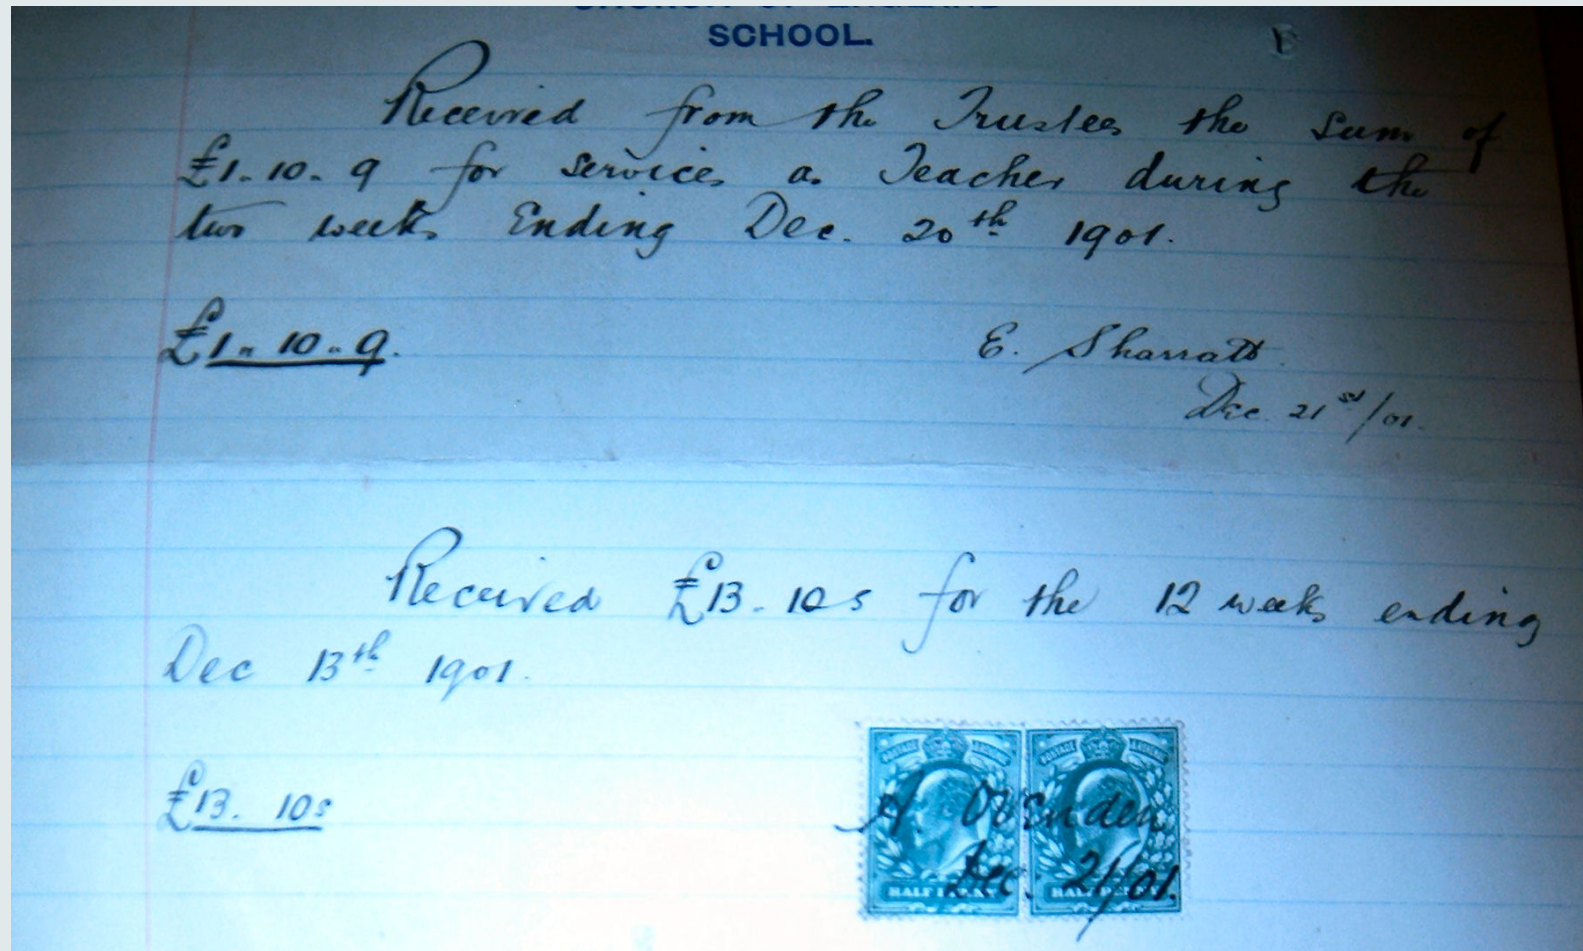 CHURCH OF ENGLAND
SCHOOL.
Received from the Trustees the sum of
£1-10-9 for services as Teacher during the
two weeks Ending Dec. 20th 1901.
£1-10-9.
E. Sharratt.
Dec. 21st/01.
Received £13-10s for the 12 weeks ending
Dec 13th 1901.
£13. 10s
POSTAGE REVENUE POSTAGE REVENUE
A. Ovenden
Dec. 21/01.
HALF PENNY HALF PENNY